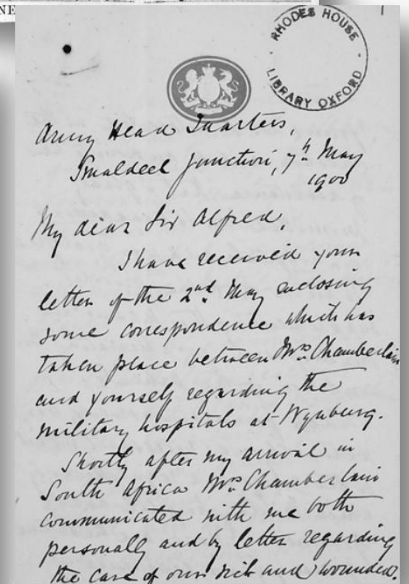 NE
RHODES HOUSE
LIBRARY OXFORD
1
Army Head Quarters,
Smaldeel Junction, 7th May
1900
My dear Sir Alfred,
I have received your
letter of the 2nd May enclosing
some correspondence which has
taken place between Mrs. Chamberlain
and yourself regarding the
military hospitals at Wynburg.
Shortly after my arrival in
South Africa Mrs. Chamberlain
communicated with me both
personally and by letter regarding
the care of our sick and wounded